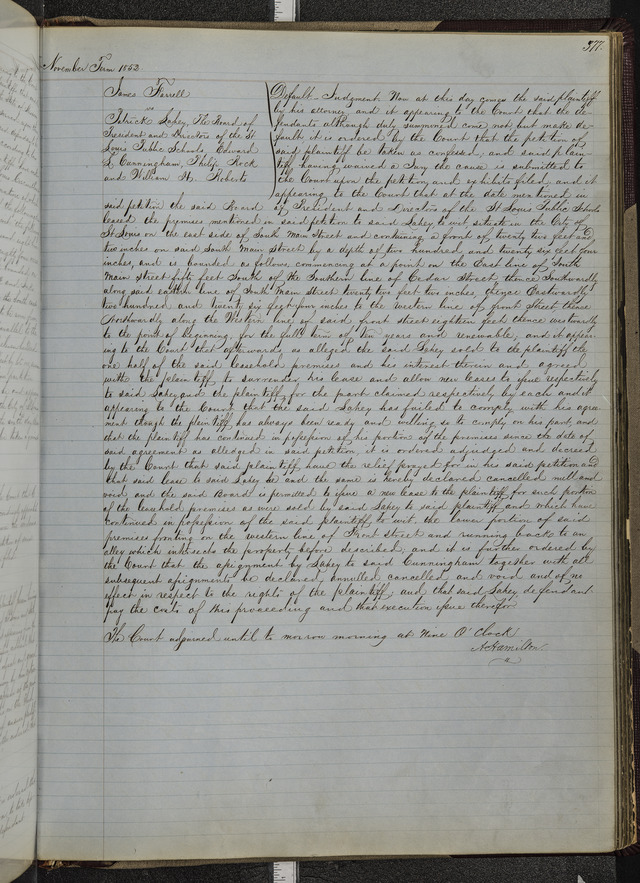 377
November Term 1852
James Farrell
vs
Patrick Lahey, The Board of
President and Directors of the St
Louis Public Schools, Edward
L. Cunningham, Philip Rock
and William N. Roberts
Default – Judgment Now at this day comes the said plaintiff
by his attorney and it appearing to the Court that the de-
fendants although duly summoned come not, but make de-
fault it is ordered by the Court that the petition of
said plaintiff be taken as confessed, and said plain-
tiff having waived a Jury the cause is submitted to
the Court upon the petition and exhibits filed, and it
appearing to the Court that at the date mentioned in
said petition the said Board of President and Directors of the St Louis Public Schools
leased the premises mentioned in said petition to said Lahey to wit, situate in the City of
St Louis on the east side of South Main Street and containing a front of twenty two feet and
two inches on said South Main Street by a depth of two hundred and twenty six feet four
inches, and is bounded as follows, commencing at a point on the East line of South
Main Street fifty feet South of the Southern line of Cedar Street, thence Southwardly
along said eastern line of South Main Street twenty two feet two inches, thence Eastwardly
two hundred and twenty six feet four inches to the western line of front Street, thence
Northwardly along the Western line of said front street eighteen feet thence westwardly
to the point of beginning, for the full term of ten years and renewable, and it appear-
ing to the Court that afterwards as alleged the said Lahey sold to the plaintiff the
one half of the said leasehold premises and his interest therein and agreed
with the plaintiff to surrender his lease and allow new leases to issue respectively
to said Lahey and the plaintiff for the part claimed respectively by each and it
appearing to the Court that the said Lahey has failed to comply with his agree-
ment though the plaintiff has always been ready and willing so to comply on his part, and
that the plaintiff has continued in possession of his portion of the premises since the date of
said agreement as alledged in said petition, it is ordered adjudged and decreed
by the Court that said plaintiff have the relief prayed for in his said petition and
that said lease to said Lahey be and the same is hereby declared cancelled null and
void and the said Board is permitted to issue a new lease to the plaintiff for such portion
of the leasehold premises as were sold by said Lahey to said plaintiff and which have
continued in possession of the said plaintiff to wit, the lower portion of said
premises fronting on the western line of Front Street and running back to an
alley which intersects the property before described, and it is further ordered by
the Court that the assignment by Lahey to said Cunningham together with all
subsequent assignments be declared annulled cancelled and void and of no
effect in respect to the rights of the plaintiff, and that said Lahey defendant
pay the costs of this proceeding and that execution issue therefor
The Court adjourned until to morrow morning at Nine O'Clock
A Hamilton